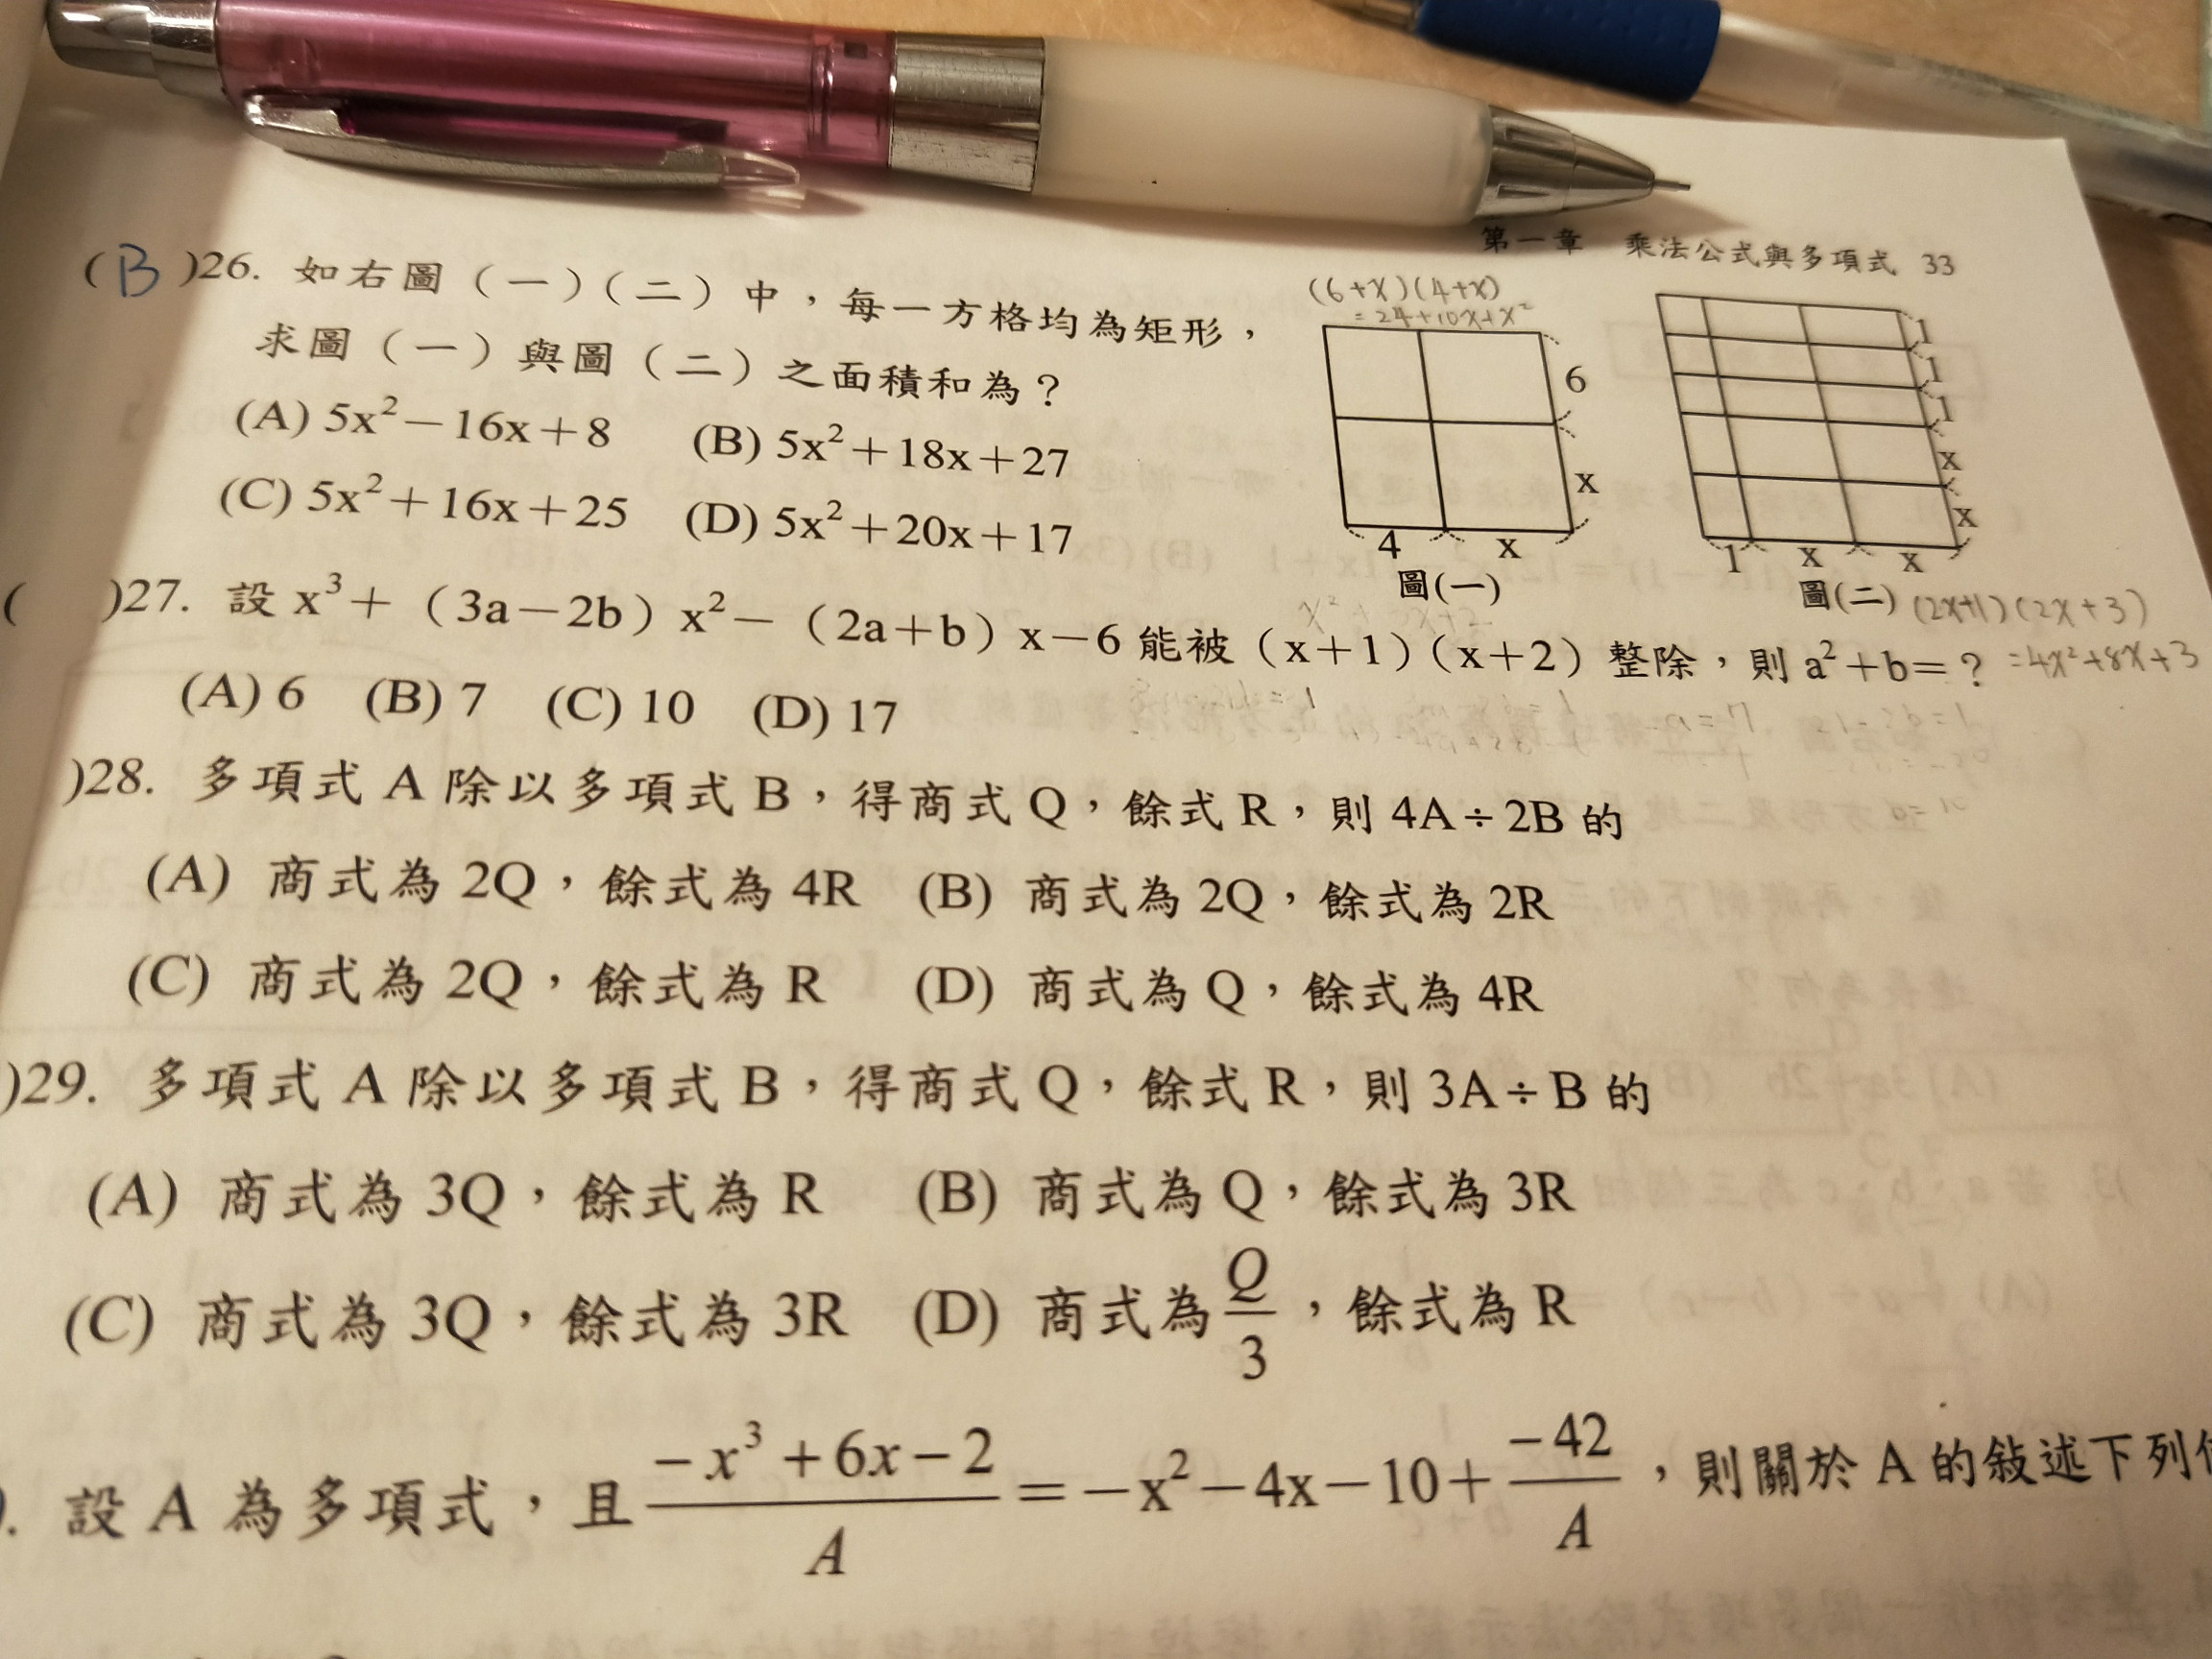 第一章 乘法公式與多項式 33
(B)26. 如右圖（一）（二）中，每一方格均為矩形，
求圖（一）與圖（二）之面積和為？
(A) 5x²－16x＋8 (B) 5x²＋18x＋27
(C) 5x²＋16x＋25 (D) 5x²＋20x＋17
(6+x)(4+x)
=24+10x+x²
6
x
4 x
圖(一)
1
1
1
x
x
1 x x
圖(二)
(2x+1)(2x+3)
=4x²+8x+3
( )27. 設 x³＋（3a－2b）x²－（2a＋b）x－6 能被（x＋1）（x＋2）整除，則 a²＋b＝？
(A) 6 (B) 7 (C) 10 (D) 17
)28. 多項式 A 除以多項式 B，得商式 Q，餘式 R，則 4A÷2B 的
(A) 商式為 2Q，餘式為 4R (B) 商式為 2Q，餘式為 2R
(C) 商式為 2Q，餘式為 R (D) 商式為 Q，餘式為 4R
)29. 多項式 A 除以多項式 B，得商式 Q，餘式 R，則 3A÷B 的
(A) 商式為 3Q，餘式為 R (B) 商式為 Q，餘式為 3R
(C) 商式為 3Q，餘式為 3R (D) 商式為 Q/3，餘式為 R
. 設 A 為多項式，且 (－x³＋6x－2)/A＝－x²－4x－10＋(－42)/A，則關於 A 的敍述下列